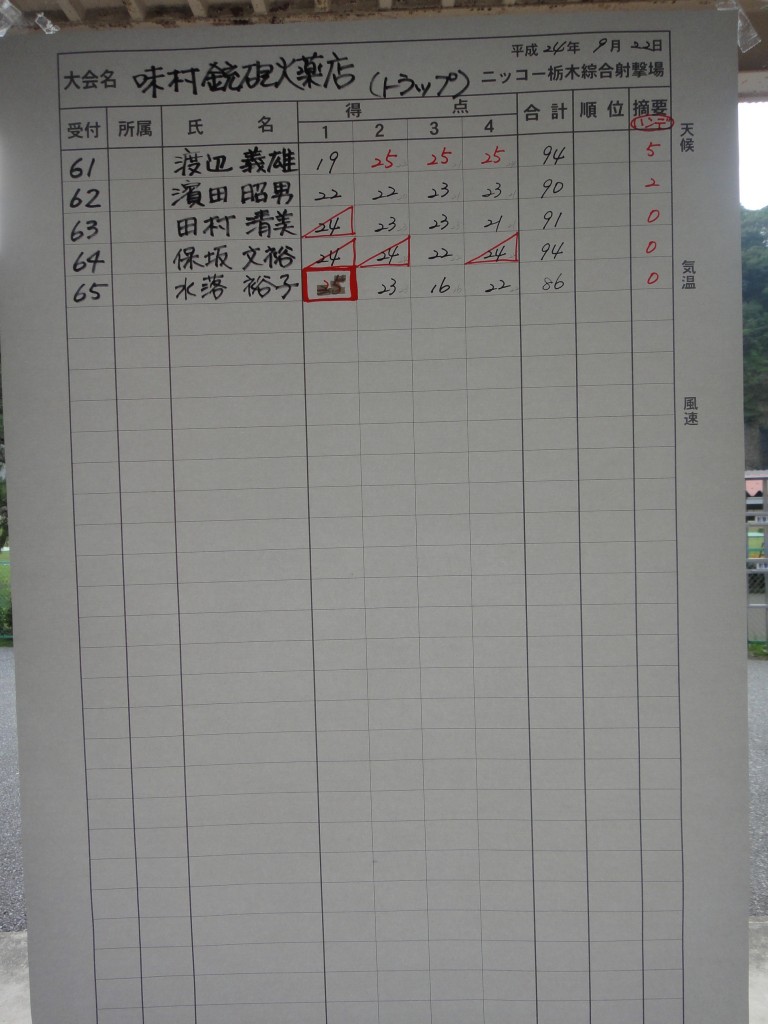 平成 24 年 9 月 22 日
大会名 味村銃砲火薬店 (トラップ) ニッコー栃木綜合射撃場
受付 所属 氏 名 得 点 合計 順位 摘要
1 2 3 4 ハンデ
61 渡辺 義雄 19 25 25 25 94 5
62 濱田 昭男 22 22 23 23 90 2
63 田村 清美 24 23 23 21 91 0
64 保坂 文裕 24 24 22 24 94 0
65 水落 裕子 25 23 16 22 86 0
天候
気温
風速